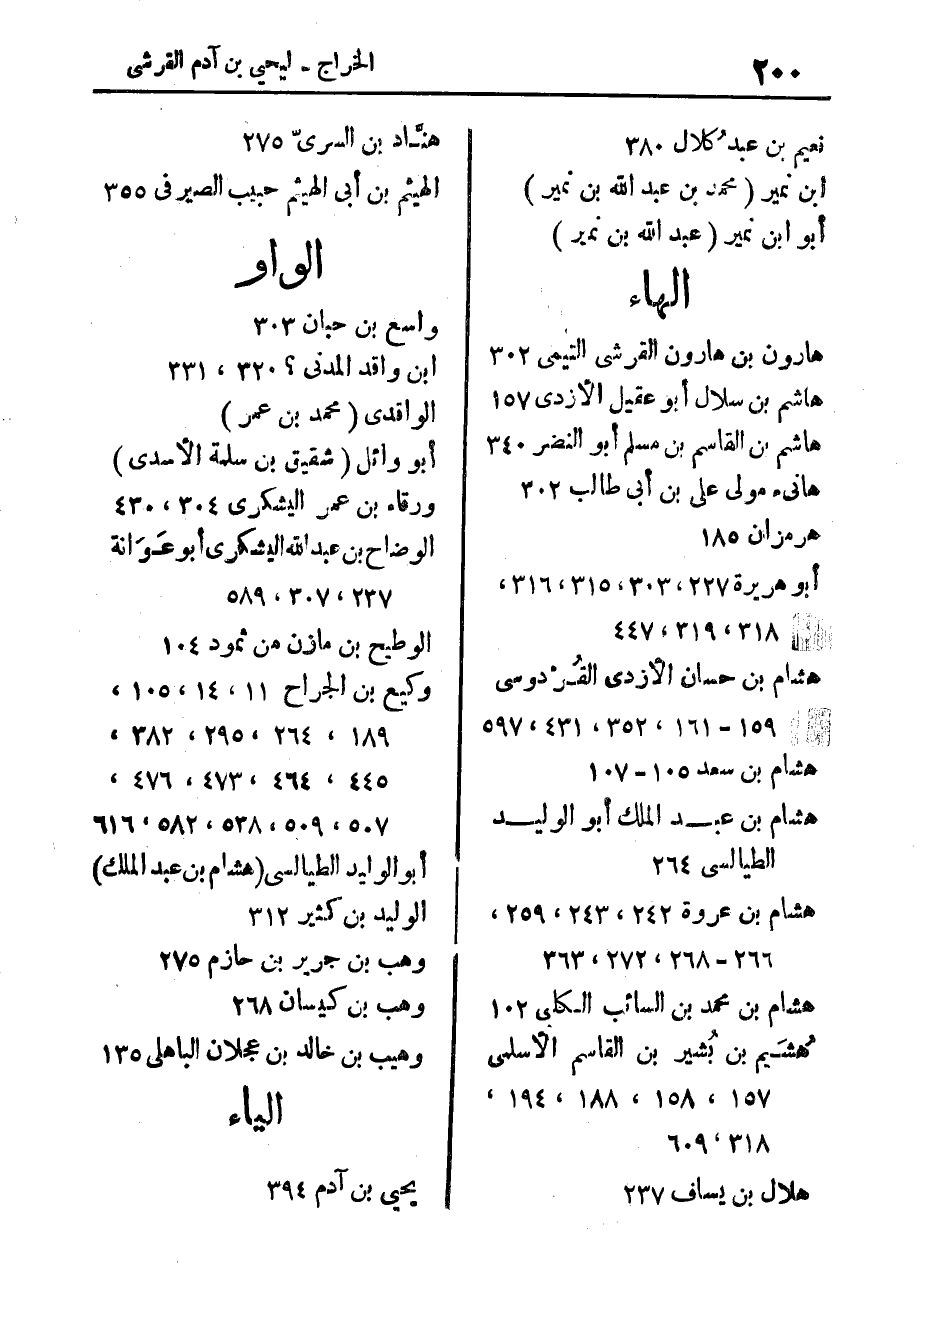 ٢٠٠
الخراج - ليحيى بن آدم القرشى
نعيم بن عبد كُلال ٣٨٠
ابن نمير ( محمد بن عبد الله بن نمير )
أبو ابن نمير ( عبد الله بن نمير )
الهاء
هارون بن هارون القرشى التيمى ٣٠٢
هاشم بن سلال أبو عقيل الأزدى ١٥٧
هاشم بن القاسم بن مسلم أبو النضر ٣٤٠
هانىء مولى على بن أبى طالب ٣٠٢
هرمزان ١٨٥
أبو هريرة ٢٢٧ ، ٣٠٣ ، ٣١٥ ، ٣١٦ ،
٣١٨ ، ٣١٩ ، ٤٤٧
هشام بن حسان الأزدى القُرْدوسى
١٥٩ - ١٦١ ، ٣٥٢ ، ٤٣١ ، ٥٩٧
هشام بن سعد ١٠٥ - ١٠٧
هشام بن عبـــد الملك أبو الوليـــد
الطيالسى ٢٦٤
هشام بن عروة ٢٤٢ ، ٢٤٣ ، ٢٥٩ ،
٢٦٦ - ٢٦٨ ، ٢٧٢ ، ٣٦٣
هشام بن محمد بن السائب الكلبى ١٠٢
هُشَيم بن بُشير بن القاسم الأسلمى
١٥٧ ، ١٥٨ ، ١٨٨ ، ١٩٤ ،
٣١٨ ، ٦٠٩
هلال بن يساف ٢٣٧
هنَّاد بن السرىّ ٢٧٥
الهيثم بن أبى الهيثم حبيب الصيرفى ٣٥٥
الواو
واسع بن حبان ٣٠٣
ابن واقد المدنى ؟ ٣٢٠ ، ٣٣١
الواقدى ( محمد بن عمر )
أبو وائل ( شقيق بن سلمة الأسدى )
ورقاء بن عمر اليشكرى ٣٠٤ ، ٤٣٠
الوضاح بن عبد الله اليشكرى أبو عَوَانة
٢٣٧ ، ٣٠٧ ، ٥٨٩
الوطيح بن مازن من ثمود ١٠٤
وكيع بن الجراح ١١ ، ١٤ ، ١٠٥ ،
١٨٩ ، ٢٦٤ ، ٢٩٥ ، ٣٨٢ ،
٤٤٥ ، ٤٦٤ ، ٤٧٣ ، ٤٧٦ ،
٥٠٧ ، ٥٠٩ ، ٥٣٨ ، ٥٨٢ ، ٦١٦
أبو الوليد الطيالسى (هشام بن عبد الملك)
الوليد بن كثير ٣١٢
وهب بن جرير بن حازم ٢٧٥
وهب بن كيسان ٢٦٨
وهيب بن خالد بن عجلان الباهلى ١٣٥
الياء
يحيى بن آدم ٣٩٤